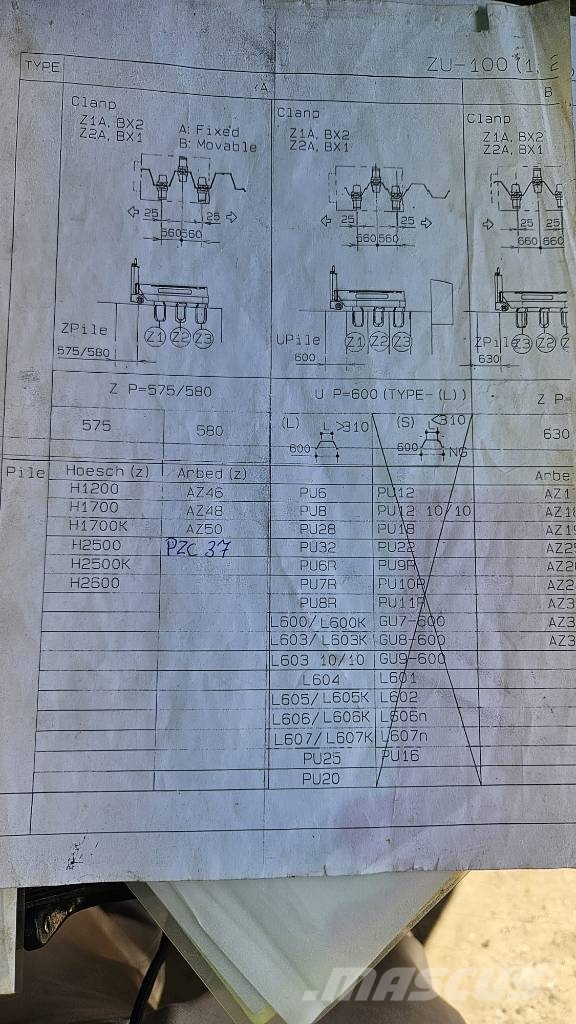 TYPE
ZU-100 (1,
(A
B
Clamp
Z1A, BX2
Z2A, BX1
A: Fixed
B: Movable
25 25
560 560
ZPile
Z1 Z2 Z3
575/580
Z P=575/580
575 580
Clamp
Z1A, BX2
Z2A, BX1
25 25
560 560
UPile
Z1 Z2 Z3
600
U P=600 (TYPE-(L))
(L) L >310
600
(S) L<310
600 NG
Clamp
Z1A, BX2
Z2A, BX1
25 25
660 660
ZPile
Z3 Z2 Z
630
Z P=
630
Pile
Hoesch (z) Arbed (z) Arbe
H1200 AZ46 PU6 PU12 AZ1
H1700 AZ48 PU8 PU12 10/10 AZ18
H1700K AZ50 PU28 PU18 AZ19
H2500 PZC 37 PU32 PU22 AZ25
H2500K PU6R PU9R AZ26
H2600 PU7R PU10R AZ2
PU8R PU11R AZ3
L600/L600K GU7-600 AZ3
L603/L603K GU8-600 AZ3
L603 10/10 GU9-600
L604 L601
L605/L605K L602
L606/L606K L606n
L607/L607K L607n
PU25 PU16
PU20
MASCUS